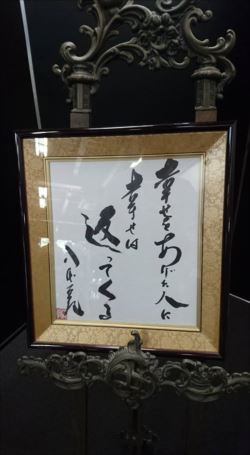 幸せをあげた人に
幸せは
返ってくる